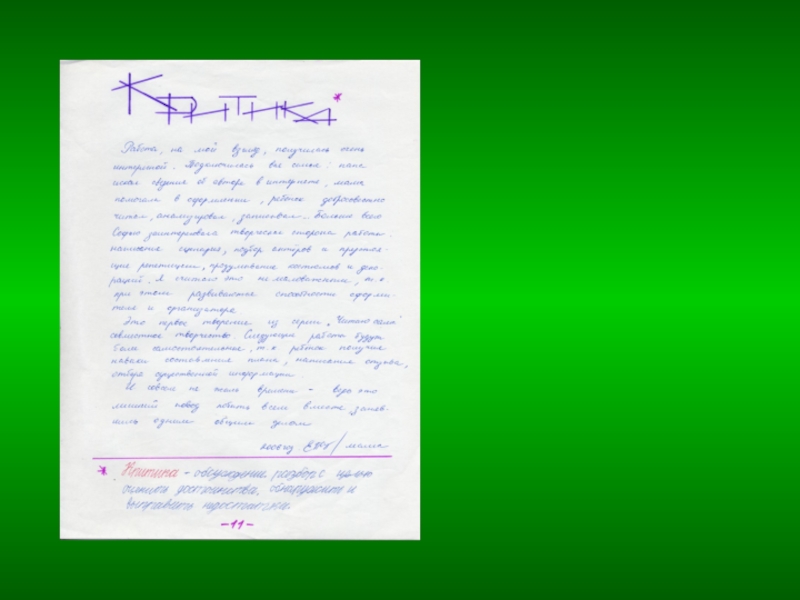 Критика *
Работа, на мой взгляд, получилась очень
интересной. Подключилась вся семья: папа
искал сведения об авторе в интернете, мама
помогала в оформлении, ребёнок добросовестно
читал, анализировал, записывал. Больше всего
Софью заинтересовала творческая сторона работы:
написание сценария, подбор актёров и предстоя-
щие репетиции, продумывание костюмов и деко-
раций. Я считаю это немаловажным, т.к.
при этом развиваются способности оформи-
теля и организатора.
Это первое творение из серии "Читаем сами"
совместное творчество. Следующие работы будут
более самостоятельное, т.к. ребёнок получил
навыки составления плана, написания отзыва,
отбора существенной информации.
И совсем не жаль времени - ведь это
лишний повод побыть всем вместе, заняв-
шись одним общим делом.
/мама
* Критика - обсуждение, разбор с целью
оценить достоинства, обнаружить и
выправить недостатки.
-11-